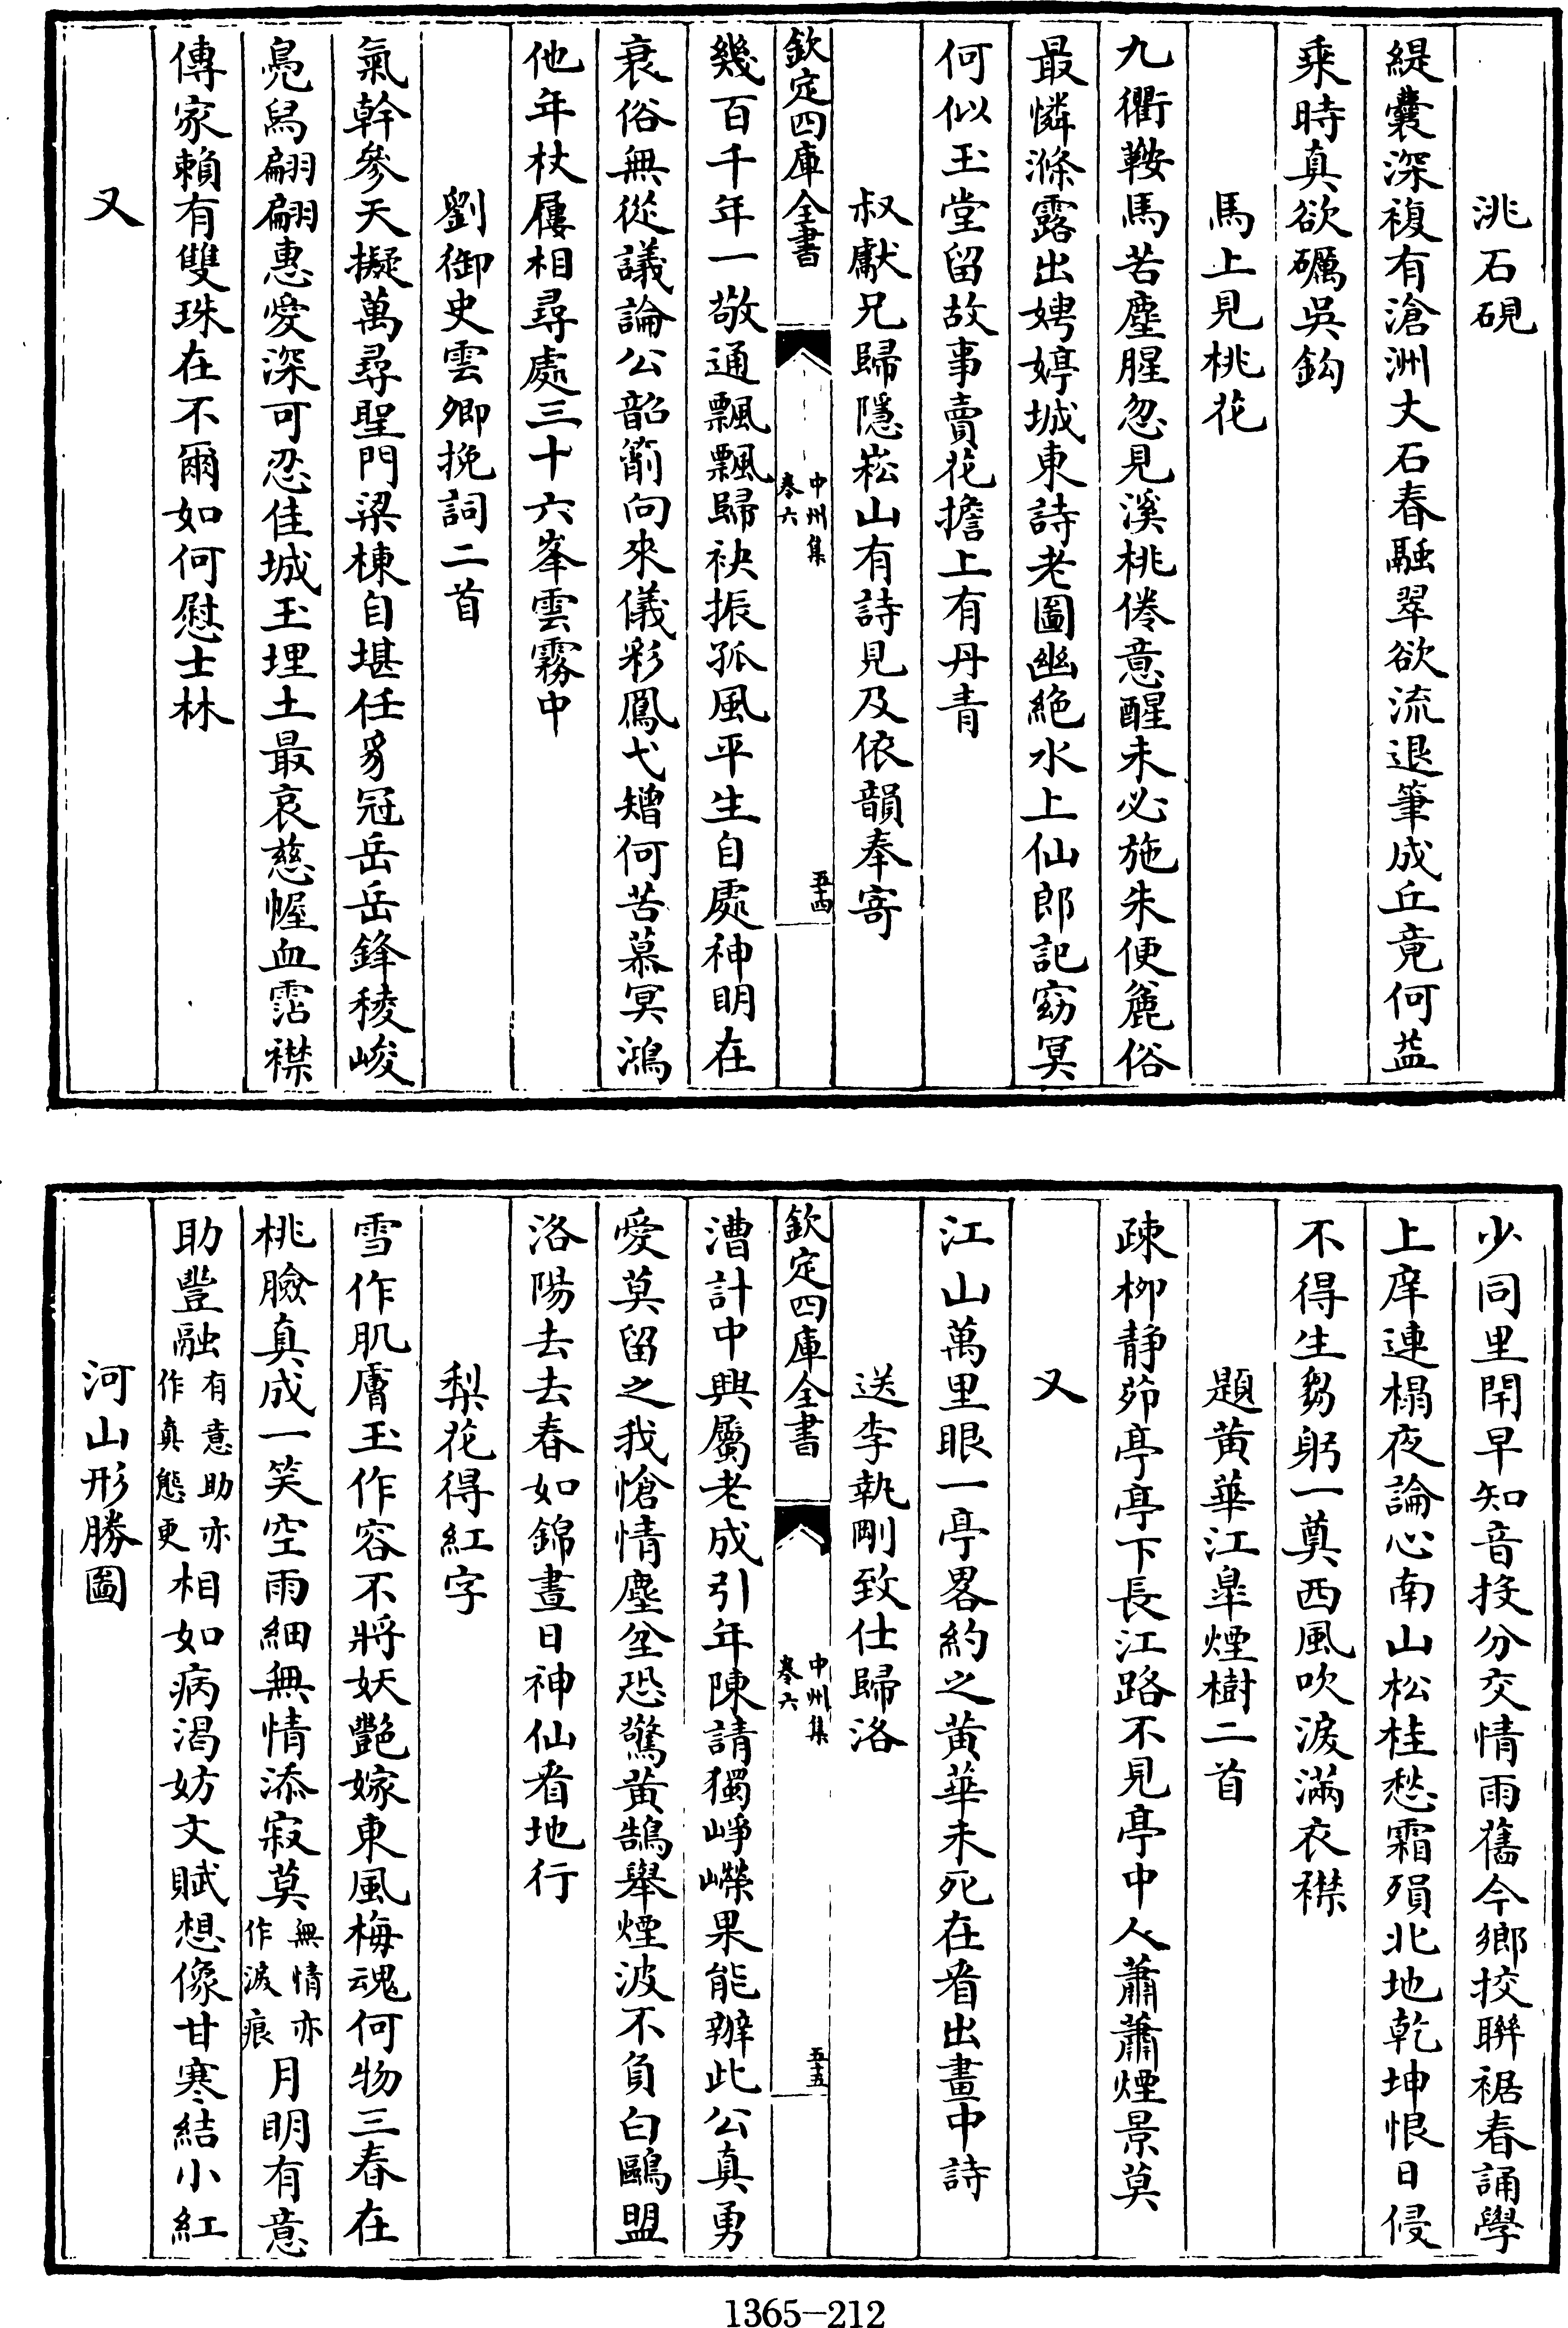 洮石硯
緹囊深複有滄洲大石春融翠欲流退筆成丘竟何益
乘時真欲礪吳鈎
馬上見桃花
九衢鞍馬苦塵腥忽見溪桃倦意醒未必施朱便麄俗
最憐滌露出娉婷城東詩老圖幽絶水上仙郎記窈冥
何似玉堂留故事賣花擔上有丹青
叔獻兄歸隱崧山有詩見及依韻奉寄
欽定四庫全書
中州集
卷六
五十四
幾百千年一敬通飄飄歸袂振孤風平生自處神明在
衰俗無從議論公韶箾向來儀彩鳳弋矰何苦慕冥鴻
他年杖屨相尋處三十六峯雲霧中
劉御史雲卿挽詞二首
氣幹參天擬萬尋聖門梁棟自堪任豸冠岳岳鋒稜峻
鳧舄翩翩惠愛深可忍佳城玉埋土最哀慈幄血霑襟
傳家賴有雙珠在不爾如何慰士林
又
少同里閈早知音投分交情雨舊今鄉挍聨裾春誦學
上庠連榻夜論心南山松桂愁霜殞北地乾坤恨日侵
不得生芻躬一奠西風吹淚滿衣襟
題黄華江臯煙樹二首
疎柳静茆亭亭下長江路不見亭中人蕭蕭煙景莫
又
江山萬里眼一亭畧約之黄華未死在看出畫中詩
送李執剛致仕歸洛
欽定四庫全書
中州集
卷六
五十五
漕計中興屬老成引年陳請獨崢嶸果能辦此公真勇
愛莫留之我愴情塵坌恐驚黄鵠舉煙波不負白鷗盟
洛陽去去春如錦晝日神仙看地行
梨花得紅字
雪作肌膚玉作容不將妖艷嫁東風梅魂何物三春在
桃臉真成一笑空雨細無情添寂莫無情亦作淚痕月明有意
助豐融有意助亦作真態更相如病渴妨文賦想像甘寒結小紅
河山形勝圖
1365-212